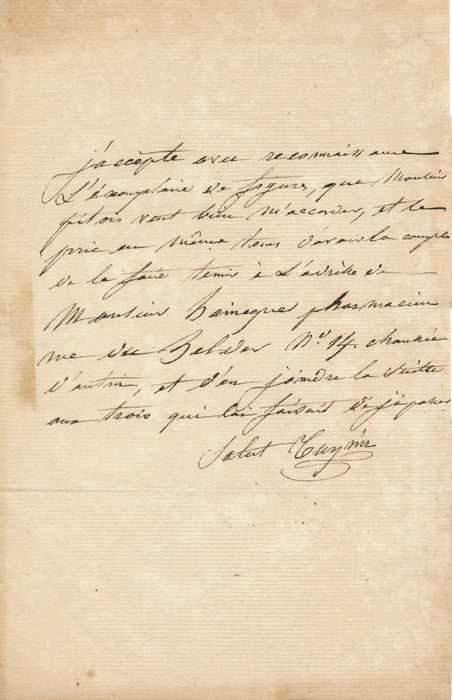 j'accepte avec reconnaissance
L'exemplaire de figures, que Monsieur
filois veut bien m'accorder, et le
prie en même tems d'avoir la comple
de le faire tenir à L'adresse de
Monsieur pharmacien
rue du Helder N.o 14. chaussée
d'antin, et d'en joindre la Suitte
aux trois qui lui faisait déjà passer
Salut